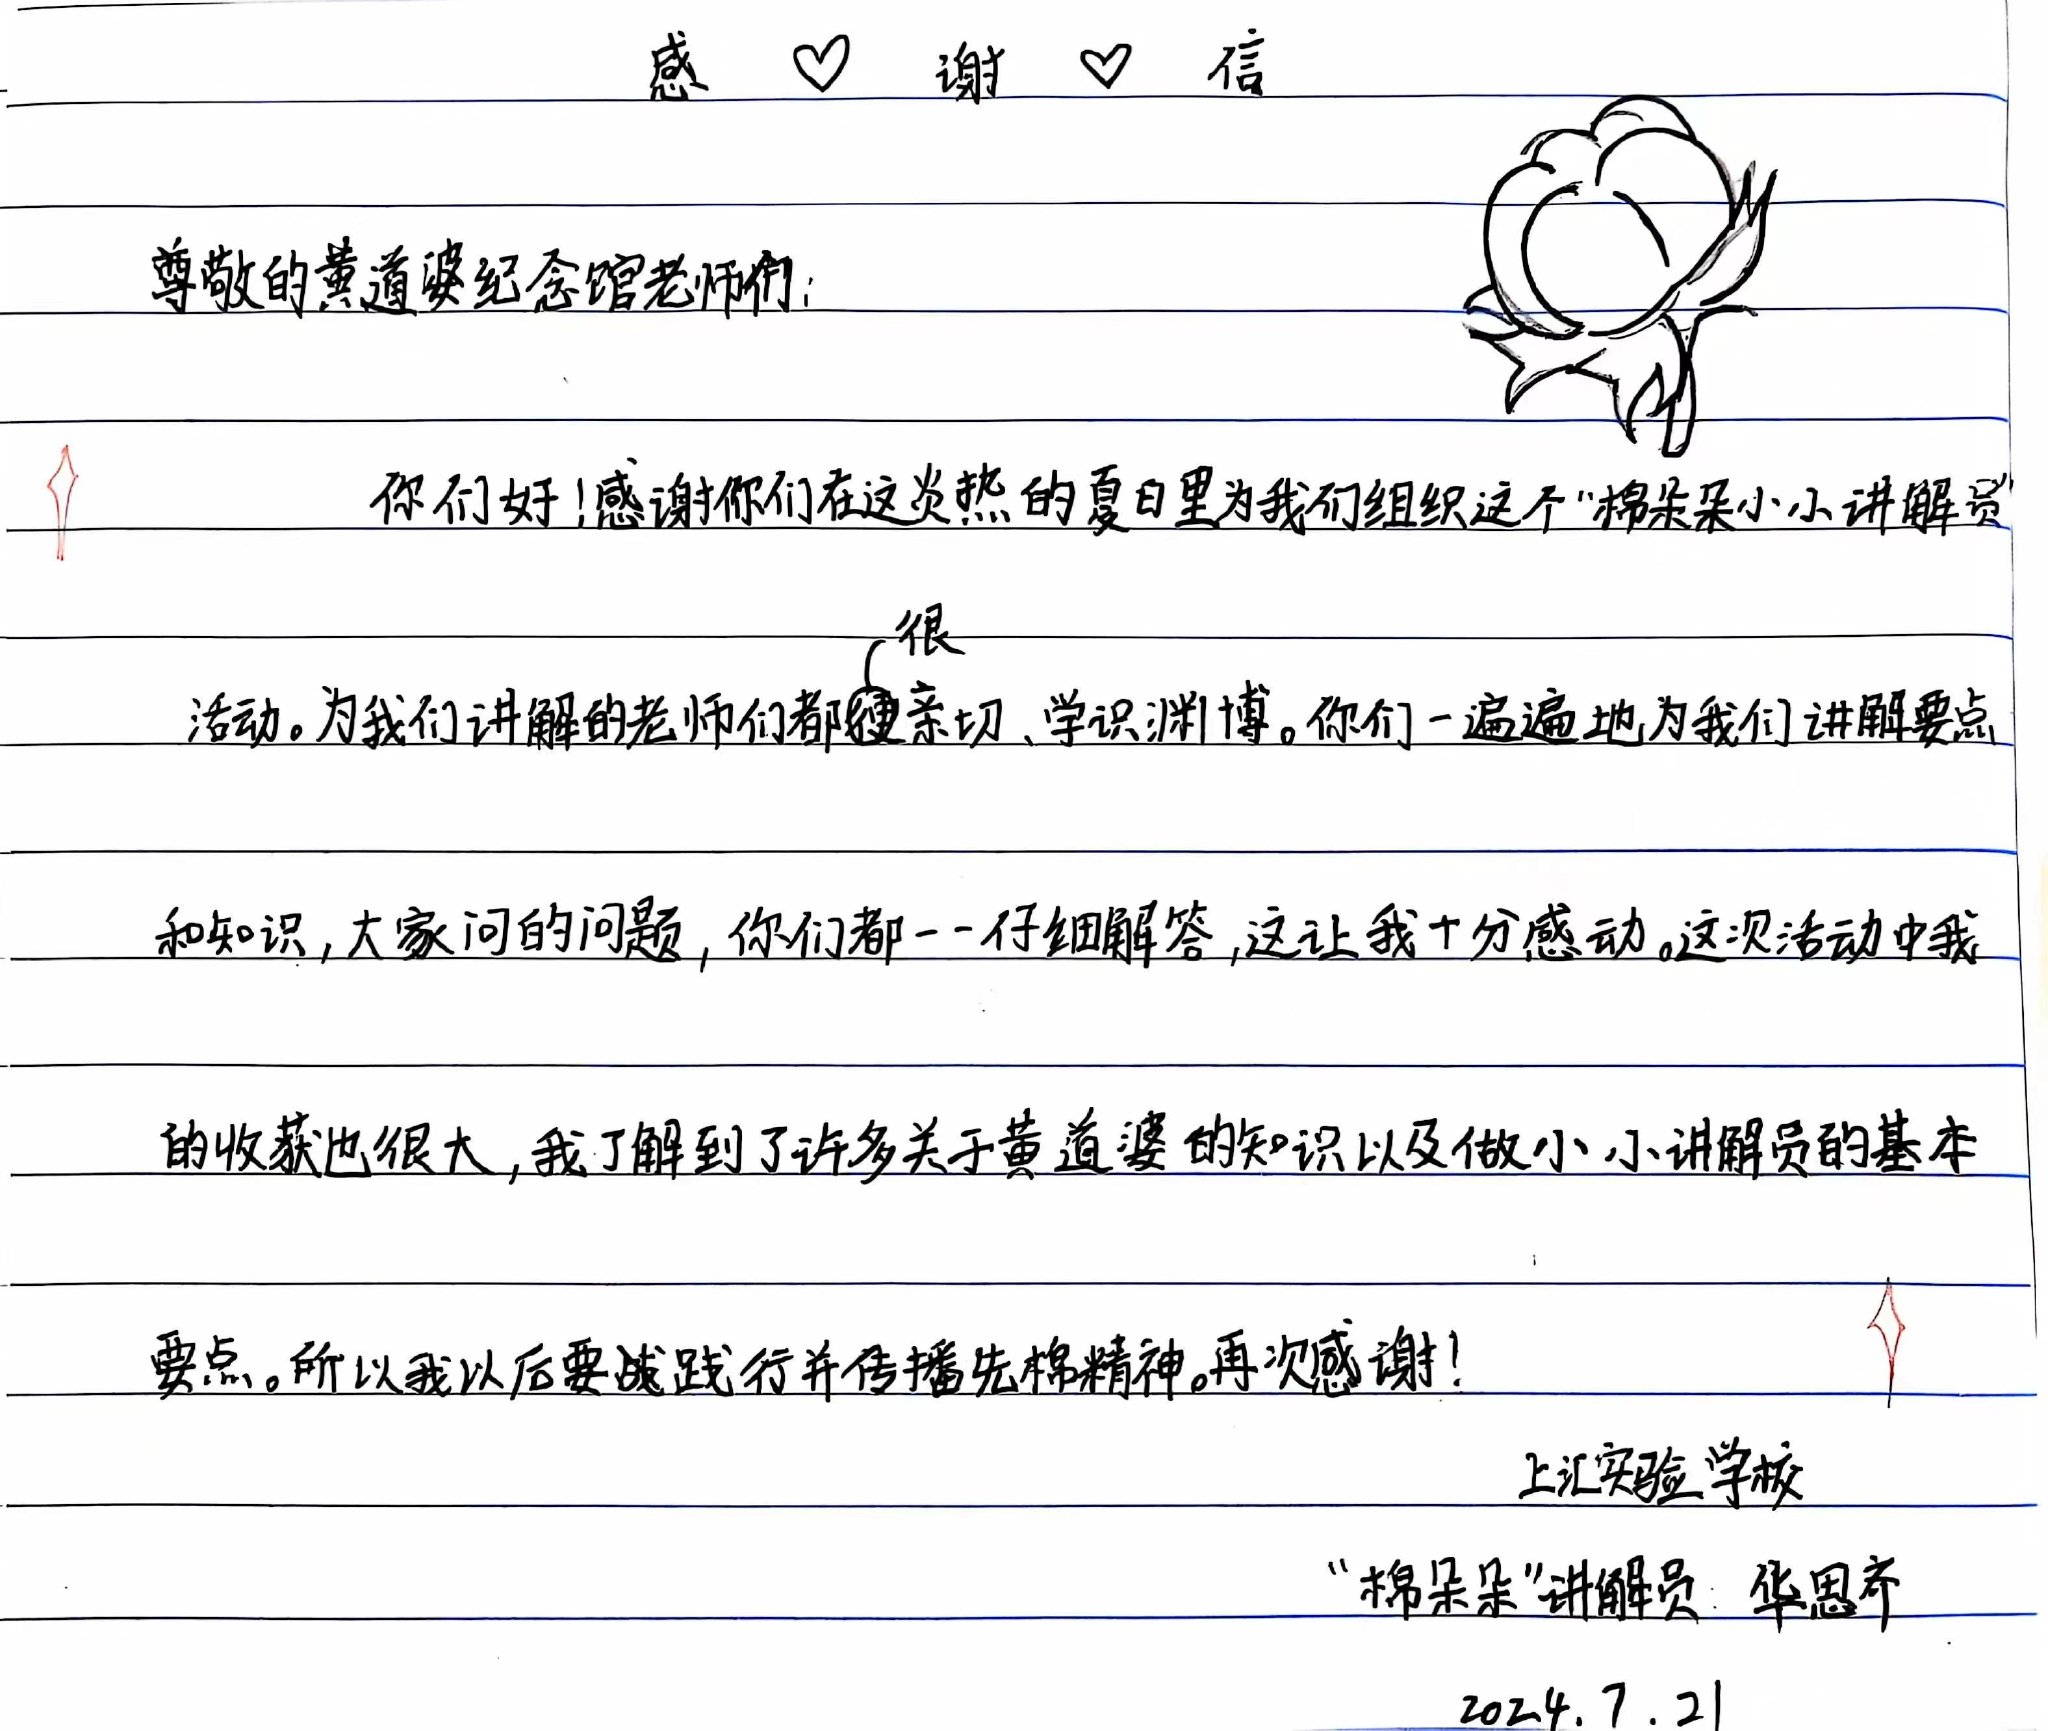 感♡谢♡信
尊敬的黄道婆纪念馆老师们:
你们好!感谢你们在这炎热的夏日里为我们组织这个"棉朵朵小小讲解员"
很
活动。为我们讲解的老师们都亲切、学识渊博。你们一遍遍地为我们讲解要点
和知识,大家问的问题,你们都一一仔细解答,这让我十分感动。这次活动中我
的收获也很大,我了解到了许多关于黄道婆的知识以及做小小讲解员的基本
要点。所以我以后要践行并传播先棉精神。再次感谢!
上汇实验学校
"棉朵朵"讲解员:华思齐
2024.7.21